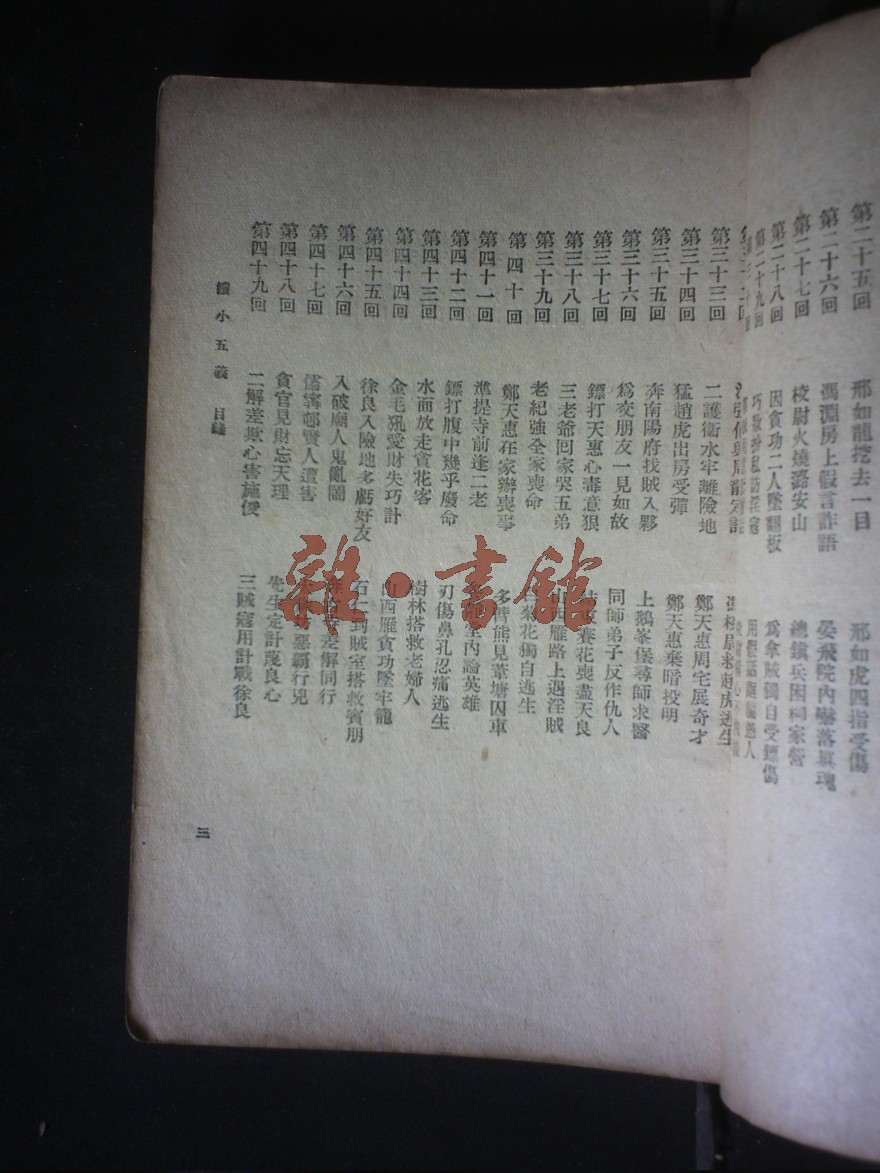 第二十五回 邢如龍挖去一目 邢如虎四指受傷
第二十六回 馮淵房上假言詐語 晏飛院內嚇落真魂
第二十七回 校尉火燒潞安山 總鎮兵困祠家營
第二十八回 因貪功二人墜翻板 為拿賊獨自受鏢傷
第二十九回
第三十三回 二護衛水牢離險地 鄭天惠周宅展奇才
第三十四回 猛趙虎出房受彈 鄭天惠棄暗投明
第三十五回 奔南陽府找賊入夥 上鵝峯堡尋師求醫
第三十六回 為交朋友一見如故 同師弟子反作仇人
第三十七回 鏢打天惠心毒意狠 花喪盡天良
第三十八回 三老爺回家哭五弟 西雁路上遇淫賊
第三十九回 老紀強全家喪命 菊花獨自逃生
第四十回 鄭天惠在家辦喪事 多臂熊見葦塘囚車
第四十一回 準提寺前逢二老 堂內論英雄
第四十二回 鏢打腹中幾乎廢命 刃傷鼻孔忍痛逃生
第四十三回 水面放走貪花客 樹林搭救老婦人
第四十四回 金毛犼愛財失巧計 山西雁貪功墜牢籠
第四十五回 徐良入險地多虧好友 石仁到賊室搭救賓朋
第四十六回 入破廟人鬼亂鬧 差解同行
第四十七回 儒寧邨賢人遭害 惡霸行兇
第四十八回 貪官見財忘天理 先生定計喪良心
第四十九回 二解差欺心害施俊 三賊寇用計戰徐良
續小五義 目錄
三
雜·書館